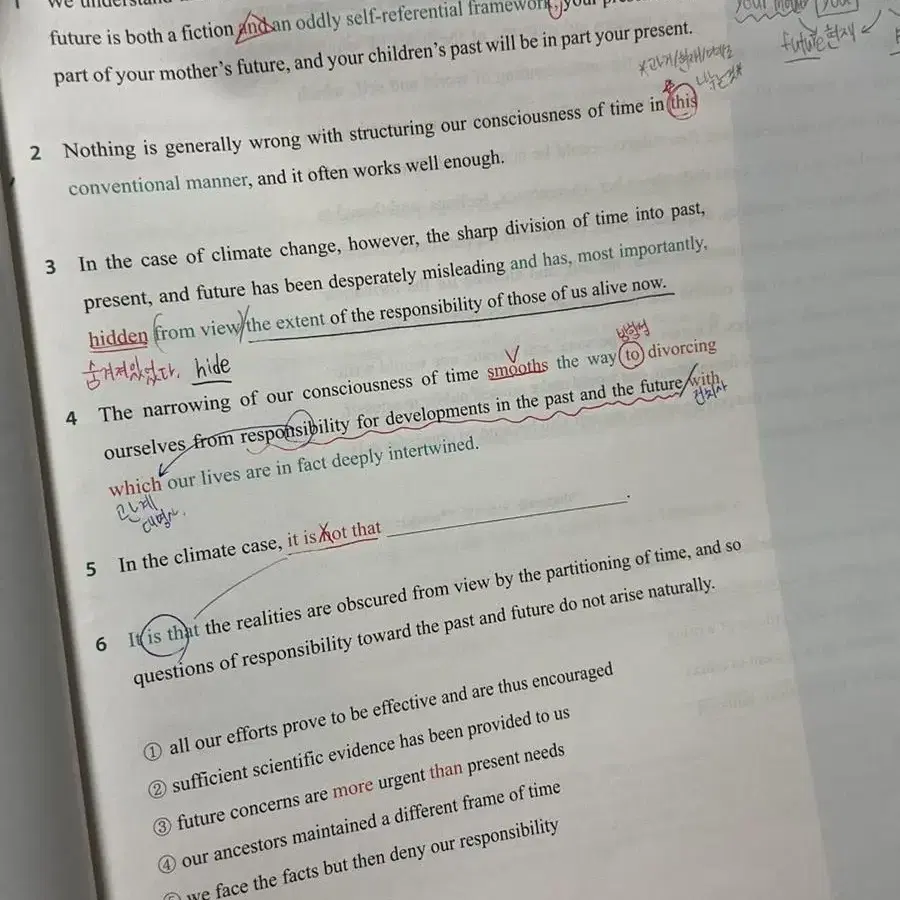 we understand
future is both a fiction and an oddly self-referential framework, your
part of your mother's future, and your children's past will be in part your present.
your mother your
future 현재
2 Nothing is generally wrong with structuring our consciousness of time in this
conventional manner, and it often works well enough.
3 In the case of climate change, however, the sharp division of time into past,
present, and future has been desperately misleading and has, most importantly,
hidden from view the extent of the responsibility of those of us alive now.
숨겨져있었다. hide
4 The narrowing of our consciousness of time smooths the way to divorcing
ourselves from responsibility for developments in the past and the future with
전치사
which our lives are in fact deeply intertwined.
관계
대명사.
5 In the climate case, it is not that ____________.
6 It is that the realities are obscured from view by the partitioning of time, and so
questions of responsibility toward the past and future do not arise naturally.
① all our efforts prove to be effective and are thus encouraged
② sufficient scientific evidence has been provided to us
③ future concerns are more urgent than present needs
④ our ancestors maintained a different frame of time
we face the facts but then deny our responsibility